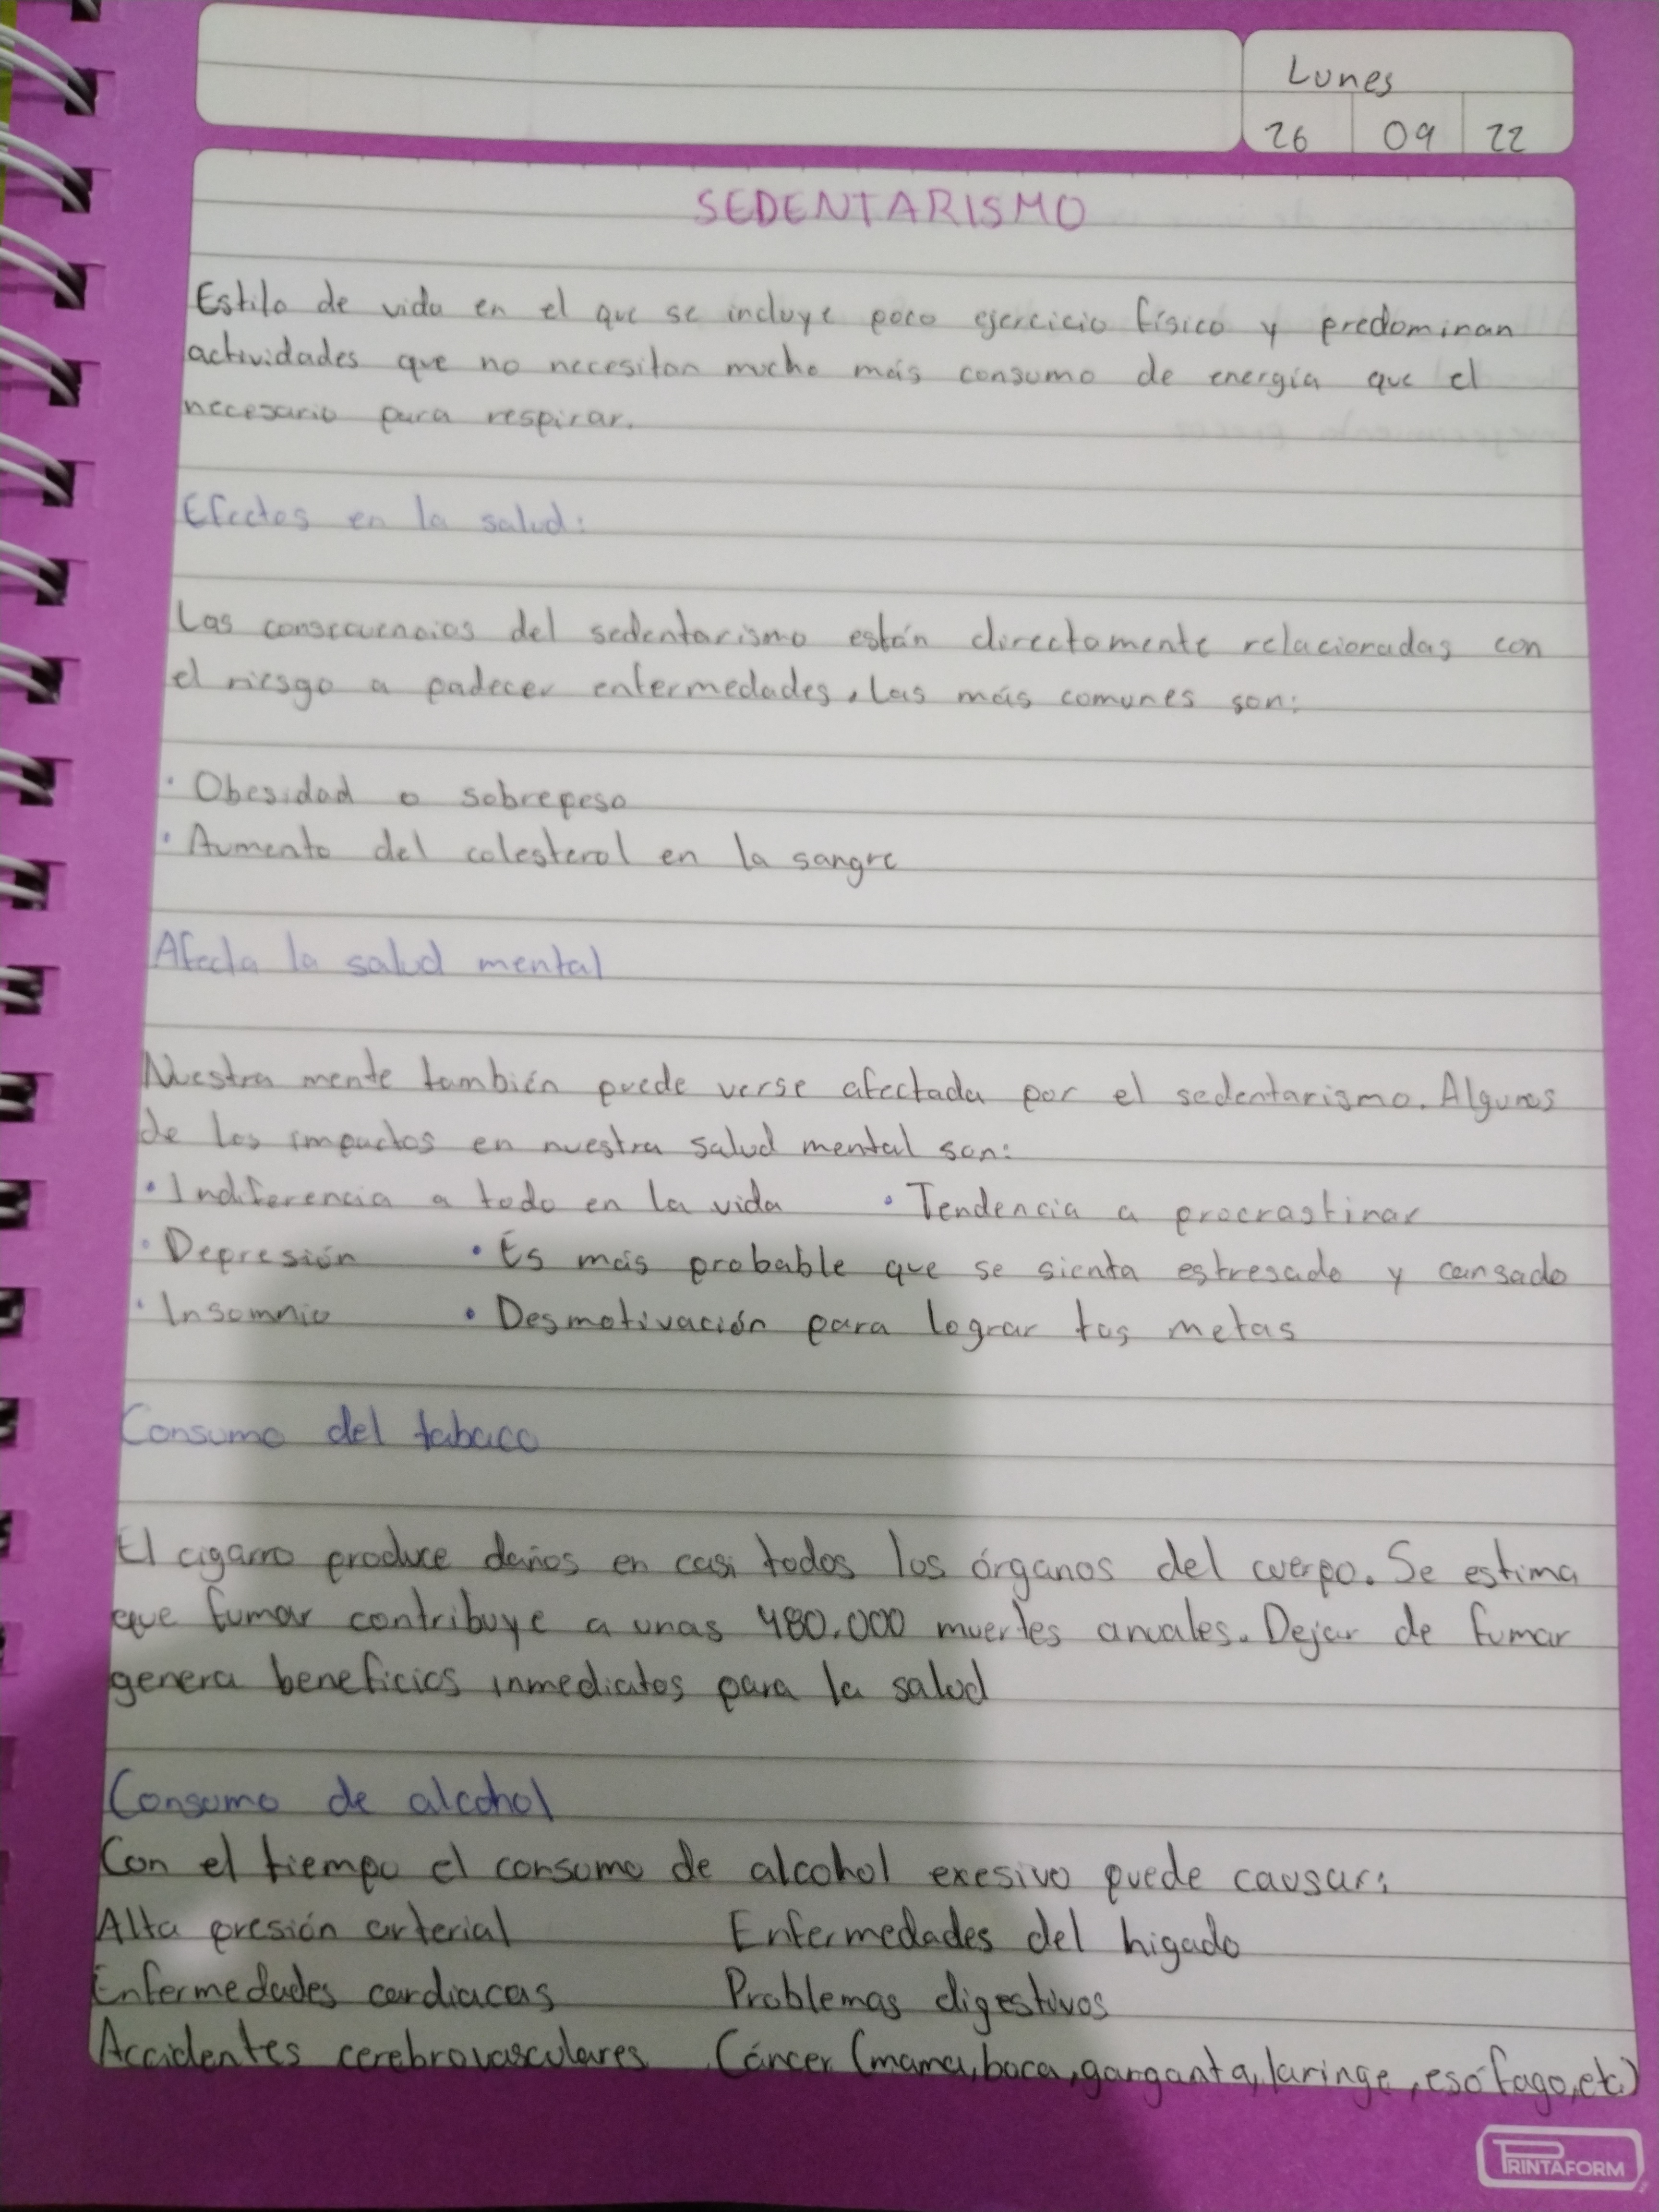 Lunes
26 09 22
SEDENTARISMO
Estilo de vida en el que se incluye poco ejercicio físico y predominan
actividades que no necesitan mucho más consumo de energía que el
necesario para respirar.
Efectos en la salud:
Las consecuencias del sedentarismo están directamente relacionadas con
el riesgo a padecer enfermedades, las más comunes son:
· Obesidad o sobrepeso
· Aumento del colesterol en la sangre
Afecta la salud mental
Nuestra mente también puede verse afectada por el sedentarismo. Algunos
de los impactos en nuestra salud mental son:
· Indiferencia a todo en la vida · Tendencia a procrastinar
· Depresión · Es más probable que se sienta estresado y cansado
· Insomnio · Desmotivación para lograr tus metas
Consumo del tabaco
El cigarro produce daños en casi todos los órganos del cuerpo. Se estima
que fumar contribuye a unas 480.000 muertes anuales. Dejar de fumar
genera beneficios inmediatos para la salud
Consumo de alcohol
Con el tiempo el consumo de alcohol exesivo puede causar:
Alta presión arterial Enfermedades del higado
Enfermedades cardiacas Problemas digestivos
Accidentes cerebrovasculares Cáncer (mama, boca, garganta, laringe, esófago, etc)
PRINTAFORM